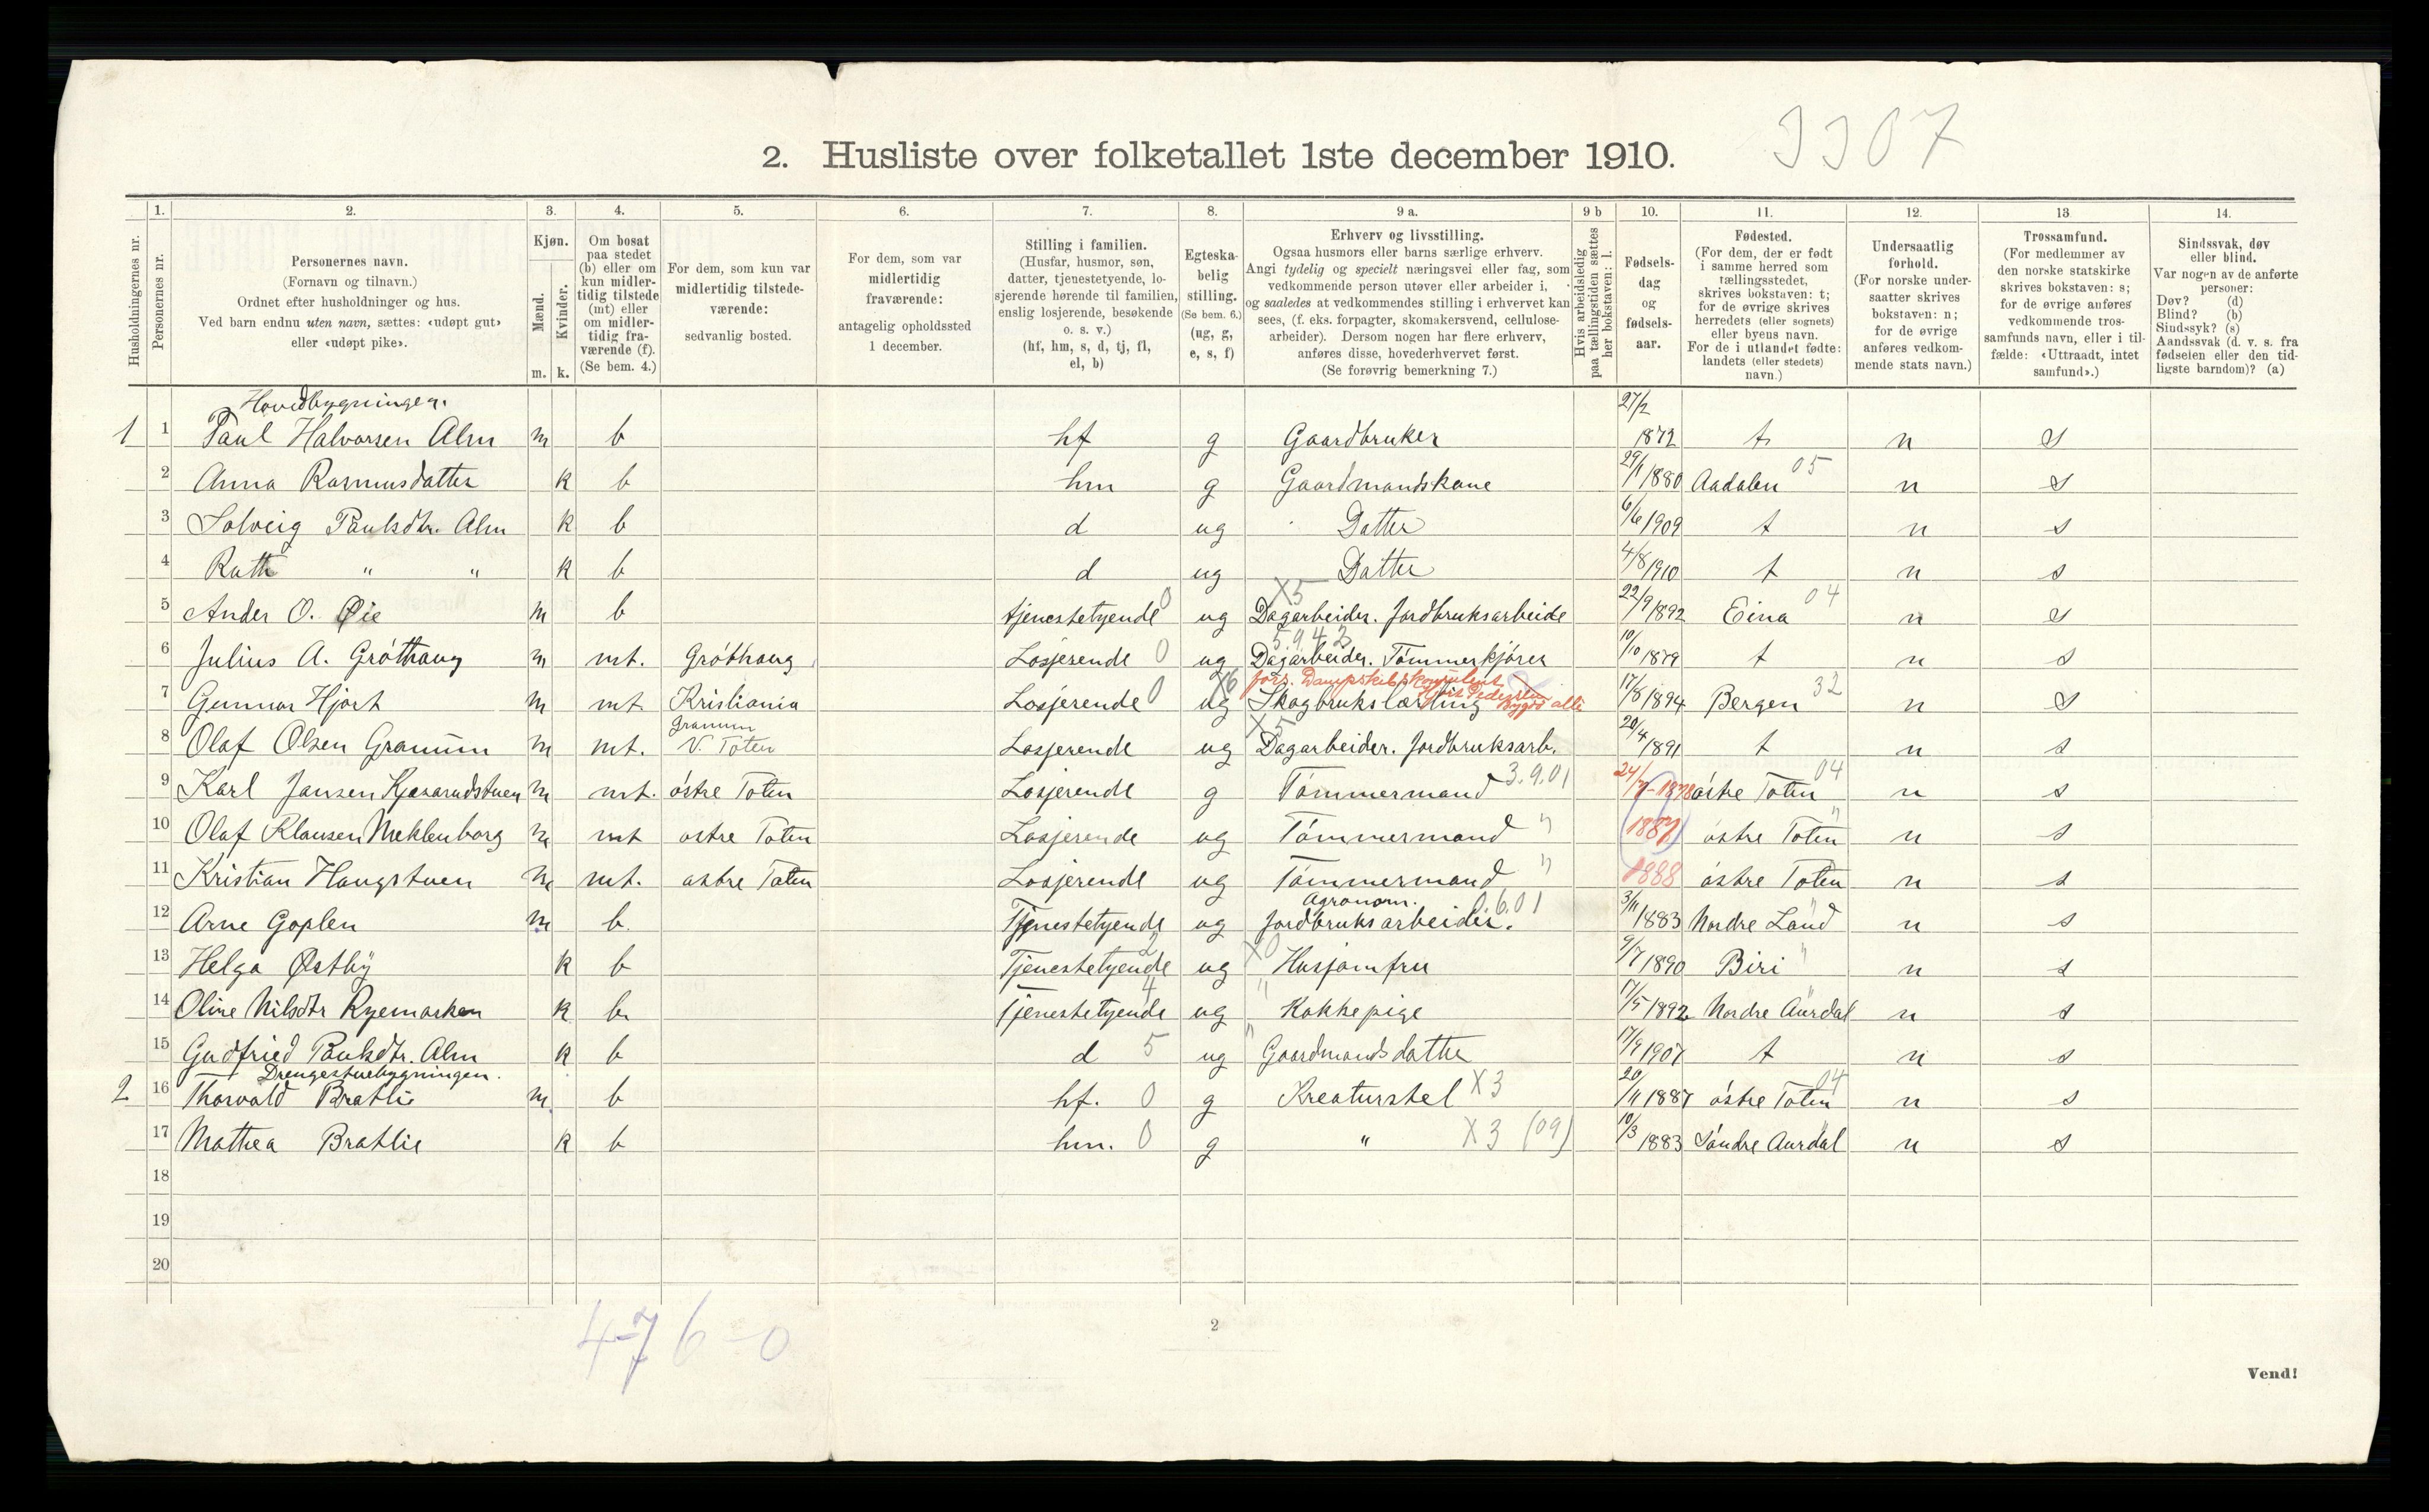 3307
2. Husliste over folketallet 1ste december 1910.
Husholdningernes nr.
1. Personernes nr.
2. Personernes navn.
(Fornavn og tilnavn.)
Ordnet efter husholdninger og hus.
Ved barn endnu uten navn, sættes: «udøpt gut»
eller «udøpt pike».
3. Kjøn.
Mænd. m.
Kvinder. k.
4. Om bosat
paa stedet
(b) eller om
kun midler-
tidig tilstede
(mt) eller
om midler-
tidig fra-
værende (f).
(Se bem. 4.)
5. For dem, som kun var
midlertidig tilstede-
værende:
sedvanlig bosted.
6. For dem, som var
midlertidig
fraværende:
antagelig opholdssted
1 december.
7. Stilling i familien.
(Husfar, husmor, søn,
datter, tjenestetyende, lo-
sjerende hørende til familien,
enslig losjerende, besøkende
o. s. v.)
(hf, hm, s, d, tj, fl,
el, b)
8. Egteska-
belig
stilling.
(Se bem. 6.)
(ug, g,
e, s, f)
9 a. Erhverv og livsstilling.
Ogsaa husmors eller barns særlige erhverv.
Angi tydelig og specielt næringsvei eller fag, som
vedkommende person utøver eller arbeider i,
og saaledes at vedkommendes stilling i erhvervet kan
sees, (f. eks. forpagter, skomakersvend, cellulose-
arbeider). Dersom nogen har flere erhverv,
anføres disse, hovederhvervet først.
(Se forøvrig bemerkning 7.)
9 b Hvis arbeidsledig
paa tællingstiden sættes
her bokstaven: l.
10. Fødsels-
dag
og
fødsels-
aar.
11. Fødested.
(For dem, der er født
i samme herred som
tællingsstedet,
skrives bokstaven: t;
for de øvrige skrives
herredets (eller sognets)
eller byens navn.
For de i utlandet fødte:
landets (eller stedets)
navn.)
12. Undersaatlig
forhold.
(For norske under-
saatter skrives
bokstaven: n;
for de øvrige
anføres vedkom-
mende stats navn.)
13 Trossamfund.
(For medlemmer av
den norske statskirke
skrives bokstaven: s;
for de øvrige anføres
vedkommende tros-
samfunds navn, eller i til-
fælde: «Uttraadt, intet
samfund».)
14. Sindssvak, døv
eller blind.
Var nogen av de anførte
personer:
Døv? (d)
Blind? (b)
Sindssyk? (s)
Aandssvak (d. v. s. fra
fødselen eller den tid-
ligste barndom)? (a)
Hovedbygningen.
1 1 Paul Halvorsen Alm m b hf g Gaardbruker 27/2 1872 t n s
2 Anna Rasmusdatter k b hm g Gaardmandskone 29/1 1880 Aadalen 05 n s
3 Solveig Paulsdtr. Alm k b d ug Datter 6/6 1909 t n s
4 Ruth " " k b d ug Datter 4/8 1910 t n s
5 Ander O. Øie m b tjenestetyende 0 ug X5 Dagarbeider. Jordbruksarbeide 22/9 1892 Eina 04 n s
6 Julius A. Gróthaug m mt. Gróthaug Losjerende 0 ug 5942 Dagarbeider. Tómmerkjórer 10/10 1879 t n s
7 Gunnar Hjort m mt Kristiania Losjerende 0 ug X6 Skogbrukslærling 17/8 1894 Bergen 32 n s
fors. Dampskibskonsulent Hjort Pedersen Bygdø allé
8 Olaf Olsen Granum m mt. Granum V. Toten Losjerende ug X5 Dagarbeider. Jordbruksarb. 20/4 1891 t n s
9 Karl Jansen m mt. óstre Toten Losjerende g Tómmermand 3.9.01 24/7-1878 óstre Toten 04 n s
10 Olaf Klausen Meklenborg m mt ostre Toten Losjerende ug Tómmermand " (1887) óstre Toten " n s
11 Kristian Haugstuen m mt. ostre Toten Losjerende ug Tómmermand " 1888 óstre Toten n s
12 Arne Goplen m b. Tjenestetyende ug Agronom. 0.6.01 Jordbruksarbeider. 3/11 1883 Nordre Land " n s
13 Helga Østby k b Tjenestetyende 2 ug X0 Husjomfru 9/7 1890 Biri " n s
14 Oline Nilsdtr Ryemarken k b. Tjenestetyende 4 ug " Kokkepige 17/5 1892 Nordre Aurdal " n s
15 Gudfried Paulsdtr. Alm k b d 5 ug " Gaardmandsdatter 17/9 1907 t n s
Drengestuebygningen.
2 16 Thorvald Bratlie m. b hf. 0 g Kreaturstel X3 20/11 1887 óstre Toten 04 n s
17 Mathea Bratlie k b hm. 0 g " X3 (09) 10/3 1883 Sóndre Aurdal n s
18
19
20
476-0
2
Vend!